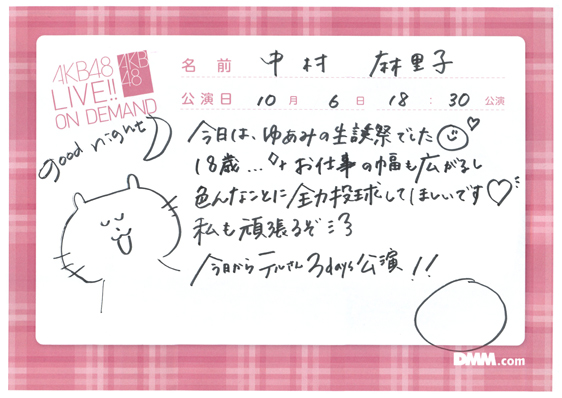 AKB48
LIVE!!
ON DEMAND
AKB
48
名前 中村 麻里子
公演日 10月 6日 18:30 公演
good night
今日は、ゆあみの生誕祭でした
18歳… お仕事の幅も広がるし
色んなことに全力投球してほしいです♡
私も頑張るぞ
今日からテルさん3days公演!!
DMM.com